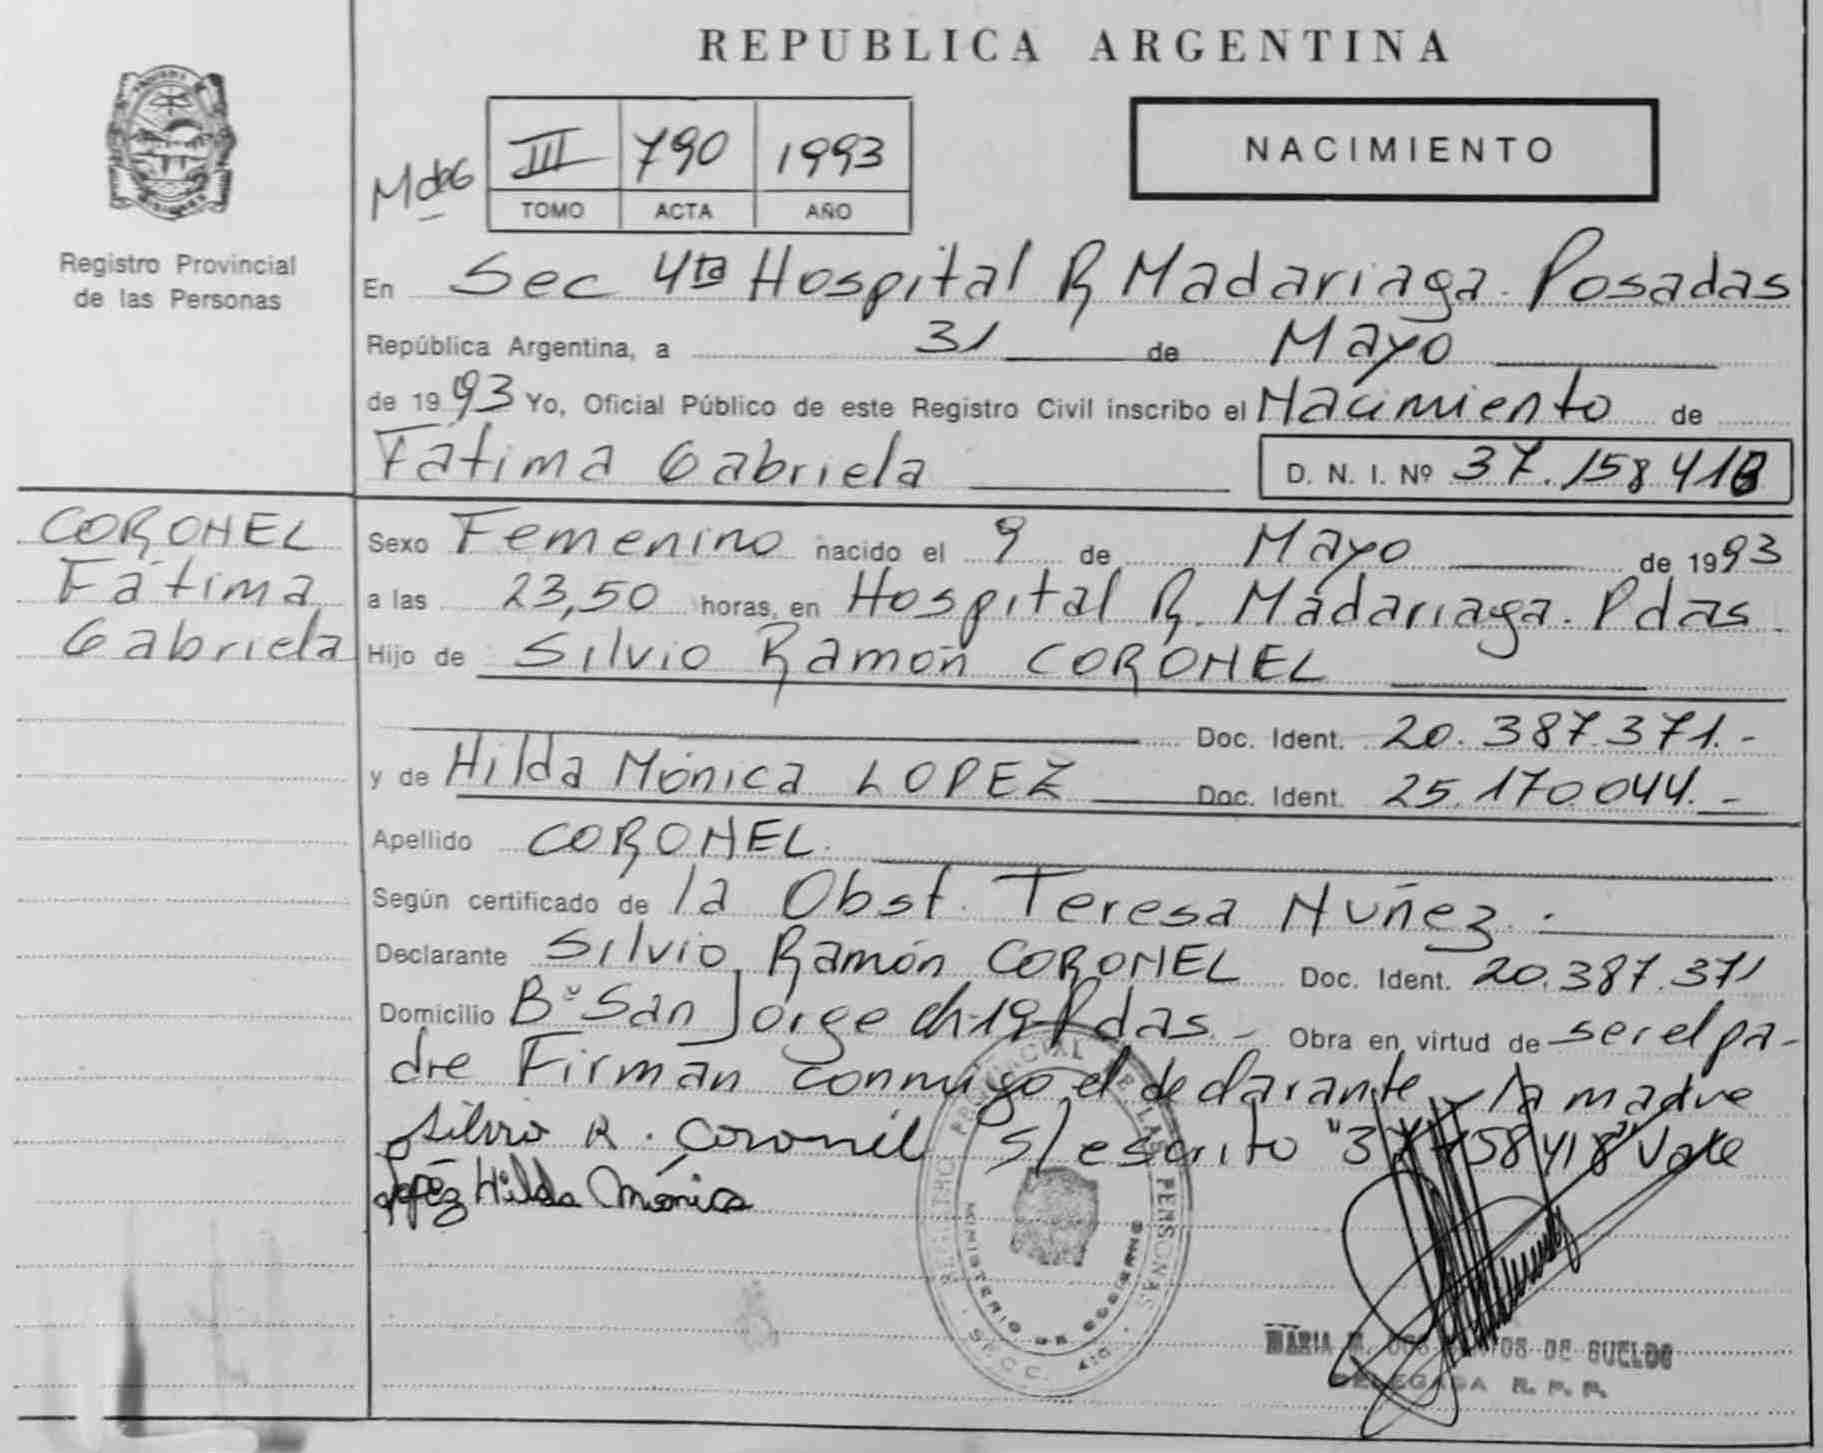 REPUBLICA ARGENTINA
NACIMIENTO
MdeG III 790 1993
TOMO ACTA AÑO
Registro Provincial
de las Personas
En Sec 4ta Hospital R Madariaga. Posadas
República Argentina, a 31 de Mayo
de 1993 Yo, Oficial Público de este Registro Civil inscribo el Nacimiento de
Fátima Gabriela D. N. I. Nº 37.158418
CORONEL
Fátima
Gabriela
Sexo Femenino nacido el 9 de Mayo de 1993
a las 23,50 horas, en Hospital R. Madariaga. Pdas.
Hijo de Silvio Ramón CORONEL
Doc. Ident. 20.387.371.-
y de Hilda Mónica LOPEZ Doc. Ident. 25.170.044.-
Apellido CORONEL.
Según certificado de la Obst. Teresa Nuñez.
Declarante Silvio Ramón CORONEL Doc. Ident. 20.387.371
Domicilio Bº San Jorge ch-19 Pdas.- Obra en virtud de ser el pa-
dre Firman conmigo el declarante y la madre
Silvio R. Coronel S/ escrito "37158418" Vale
López Hilda Mónica
REGISTRO PROVINCIAL DE LAS PERSONAS
MINISTERIO DE GOBIERNO
MARIA DOS SANTOS DE SUELDO
DELEGADA R. P. P.